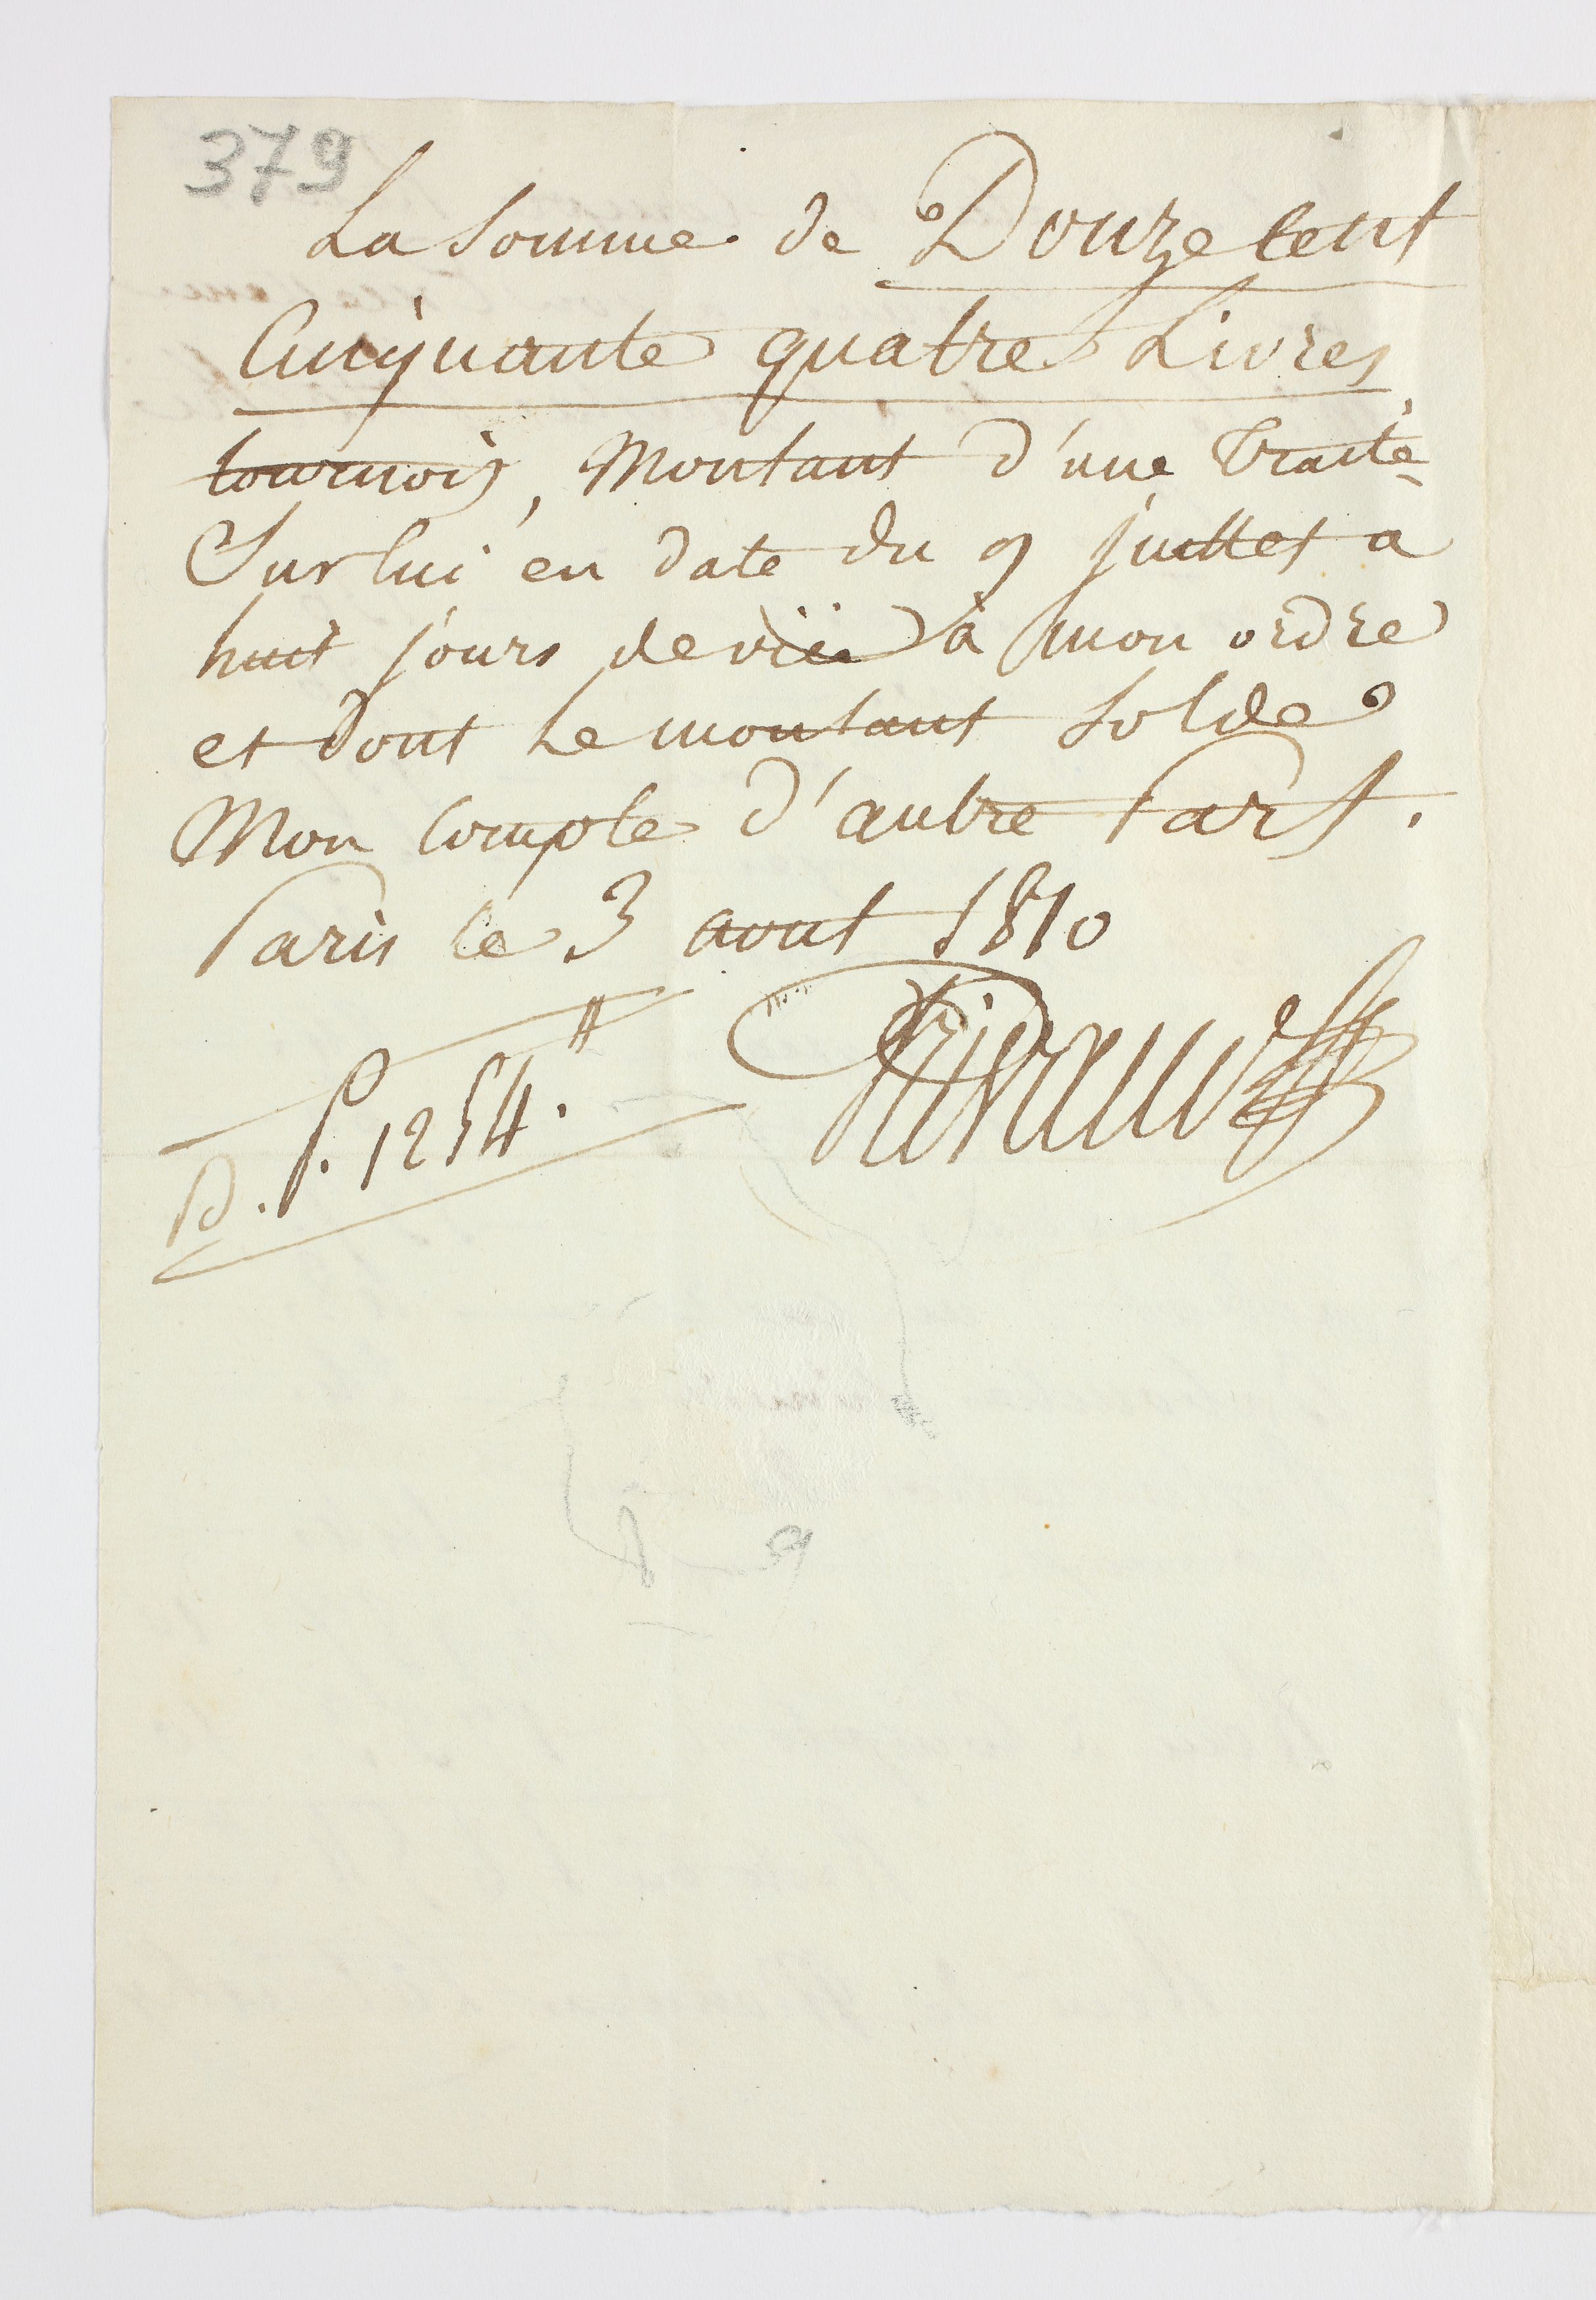 379
La Somme de Douze Cent
Cinquante quatre Livres
tournois, Montant d'une Traite
Sur lui en date du 9 juillet a
huit jours de vüe à mon ordre
et dont Le montant Solde
Mon Compte d'autre Part.
Paris le 3 aout 1810
B. P. 1254.